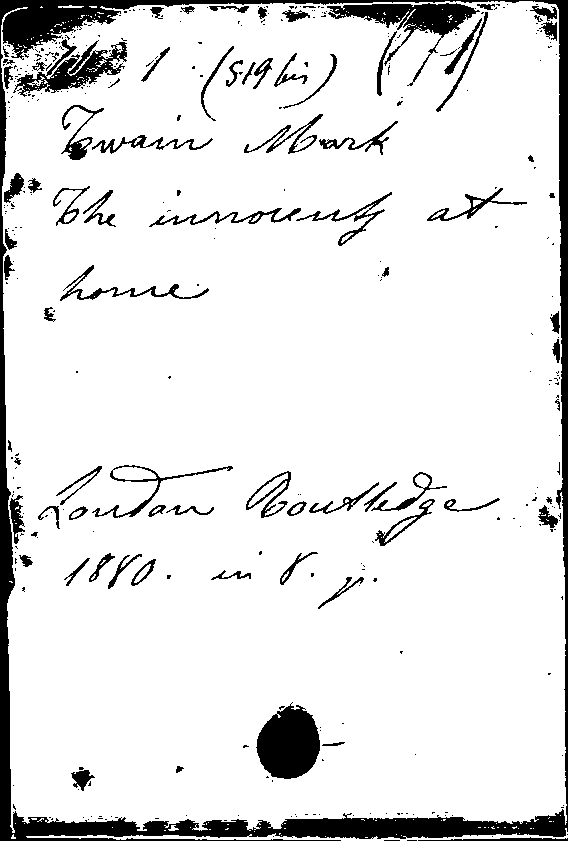 , 1 (519 bis)
Twain Mark
The innocents at
home
London Routledge
1880. in 8. p.